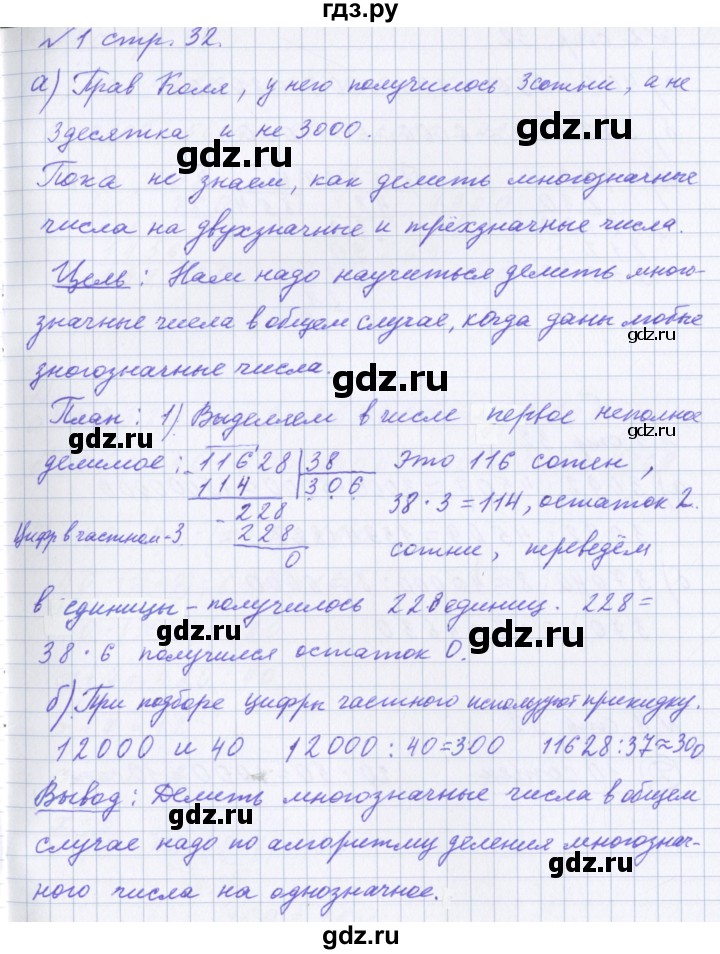 гдз.ру
№ 1 стр. 32.
а) Прав Коля, у него получилось 3 сотни, а не
3 десятка и не 3000.
gdz.ru gdz.ru
Пока не знаем, как делить многозначные
числа на двузначные и трёхзначные числа.
Цель: Нам надо научиться делить много-
значные числа в общем случае, когда даны любые
gdz.ru
зногозначные числа.
gdz.ru
План: 1) Выделяем в числе первое неполное
gdz.ru
делимое: 11628 | 38 Это 116 сотен,
114 306 38 · 3 = 114, остаток 2.
- 228
Цифр в частном - 3 228 сотни, переведём
0
в единицы - получилось 228 единиц. 228 =
gdz.ru gdz.ru
38 · 6 получился остаток 0.
б) При подборе цифры частного используют прикидку.
12000 и 40 12000 : 40 = 300 11628 : 37 ≈ 300
Вывод: Делить многозначные числа в общем
gdz.ru
случае надо по алгоритму деления многознач-
gdz.ru
ного числа на однозначное.
gdz.ru